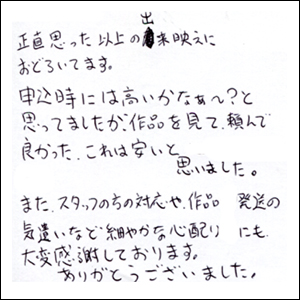 正直思った以上の出来映えに
おどろいてます。
申込時には高いかなぁ〜?と
思ってましたが、作品を見て、頼んで
良かった、これは安いと
思いました。
また、スタッフのちの対応や、作品 発送の
気遣いなど細やかな心配り にも、
大変感謝しております。
ありがとうございました。